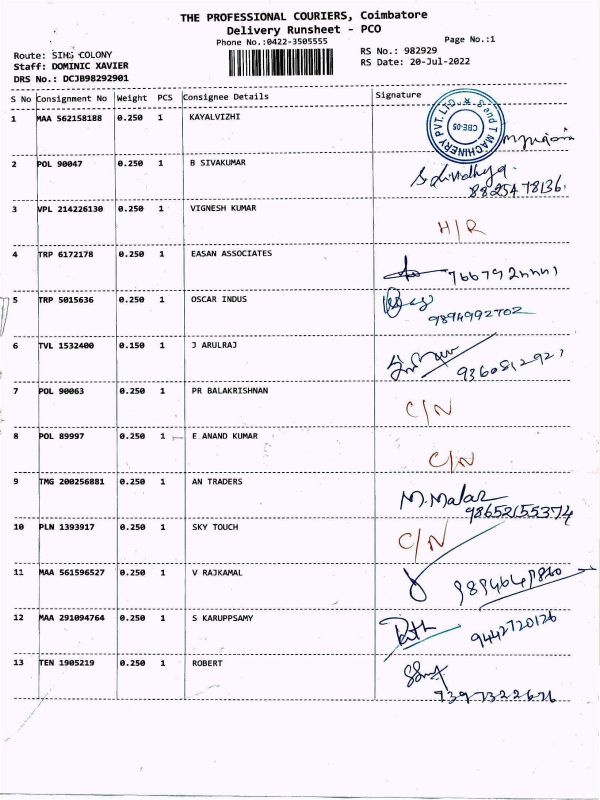 THE PROFESSIONAL COURIERS, Coimbatore
Delivery Runsheet - PCO
Phone No.:0422-3505555
Page No.:1
Route: SIHS COLONY
RS No.: 982929
Staff: DOMINIC XAVIER
RS Date: 20-Jul-2022
DRS No.: DCJB98292901
S No Consignment No Weight PCS Consignee Details Signature
1 MAA 562158188 0.250 1 KAYALVIZHI
MACHINERY PVT. LTD. CBE-05
2 POL 90047 0.250 1 B SIVAKUMAR
8825478136.
3 VPL 214226130 0.250 1 VIGNESH KUMAR H/R
4 TRP 6172178 0.250 1 EASAN ASSOCIATES
5 TRP 5015636 0.250 1 OSCAR INDUS
9894992702
6 TVL 1532400 0.150 1 J ARULRAJ
7 POL 90063 0.250 1 PR BALAKRISHNAN C/N
8 POL 89997 0.250 1 E ANAND KUMAR C/N
9 TMG 200256881 0.250 1 AN TRADERS M.Malar
10 PLN 1393917 0.250 1 SKY TOUCH C/N
11 MAA 561596527 0.250 1 V RAJKAMAL
12 MAA 291094764 0.250 1 S KARUPPSAMY
9442720126
13 TEN 1905219 0.250 1 ROBERT